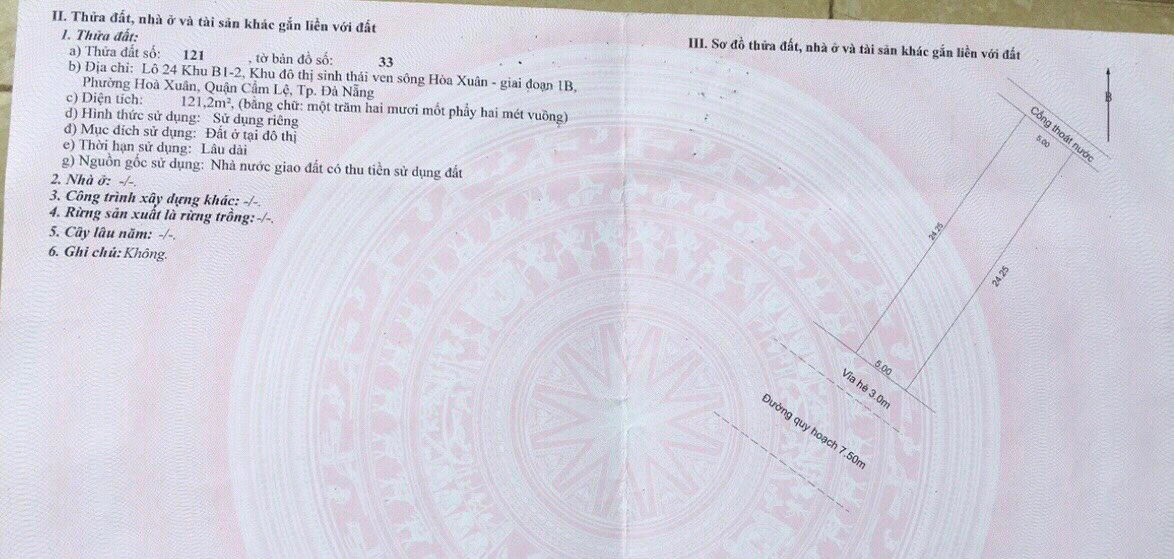 II. Thửa đất, nhà ở và tài sản khác gắn liền với đất
1. Thửa đất:
a) Thửa đất số: 121 , tờ bản đồ số: 33
b) Địa chỉ: Lô 24 Khu B1-2, Khu đô thị sinh thái ven sông Hòa Xuân - giai đoạn 1B,
Phường Hoà Xuân, Quận Cẩm Lệ, Tp. Đà Nẵng
c) Diện tích: 121,2m², (bằng chữ: một trăm hai mươi mốt phẩy hai mét vuông)
d) Hình thức sử dụng: Sử dụng riêng
đ) Mục đích sử dụng: Đất ở tại đô thị
e) Thời hạn sử dụng: Lâu dài
g) Nguồn gốc sử dụng: Nhà nước giao đất có thu tiền sử dụng đất
2. Nhà ở: -/-.
3. Công trình xây dựng khác: -/-.
4. Rừng sản xuất là rừng trồng: -/-.
5. Cây lâu năm: -/-.
6. Ghi chú: Không.
III. Sơ đồ thửa đất, nhà ở và tài sản khác gắn liền với đất
B
Cống thoát nước
5.00
24.25
24.25
5.00
Vỉa hè 3.0m
Đường quy hoạch 7.50m